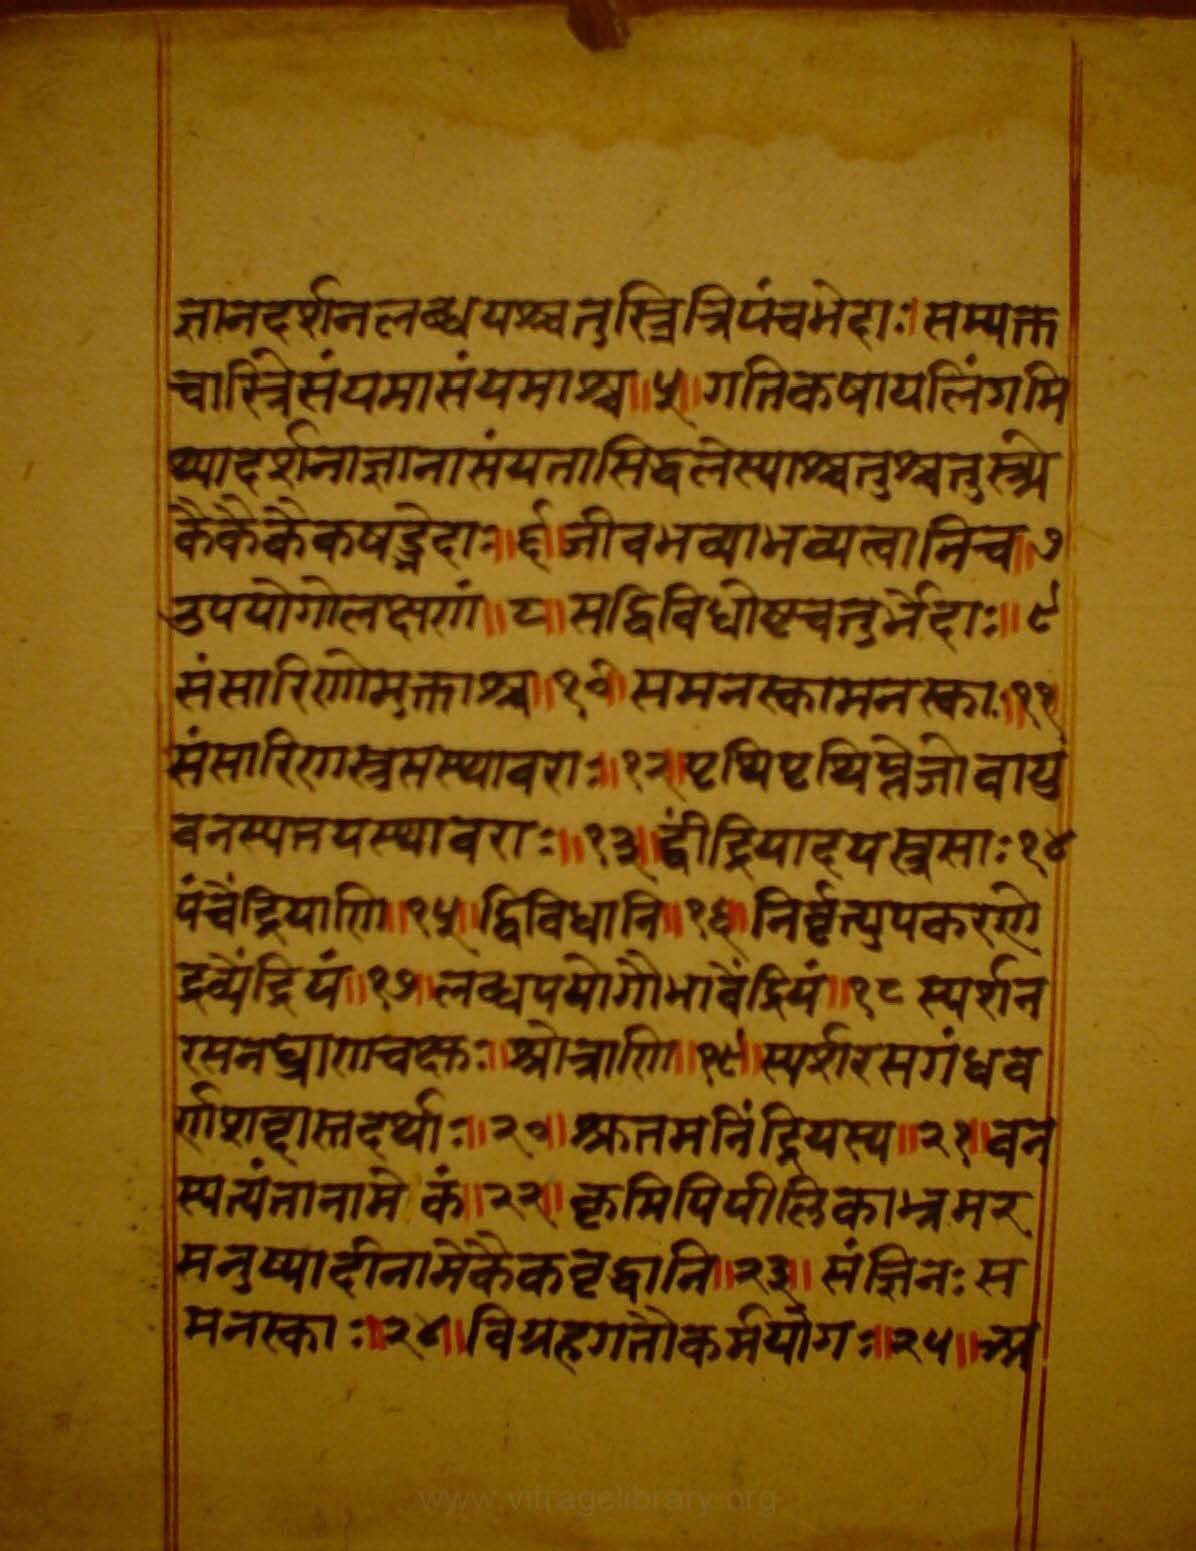 ज्ञानदर्शनलब्धयश्चतुस्त्रित्रिपंचभेदाः। सम्यक्त
चारित्रसंयमासंयमाश्च॥५॥गतिकषायलिंगमि
थ्यादर्शनाज्ञानासंयतासिद्धलेस्याश्चतुश्चतुस्त्र्ये
कैकैकैकषड्भेदाः॥६॥जीवभव्याभव्यत्वानिच॥७
उपयोगोलक्षणं॥८॥सद्विविधोष्टचतुर्भेदाः॥९
संसारिणोमुक्ताश्च॥१०॥समनस्कामनस्काः॥११
संसारिणस्त्रसस्थावराः॥१२॥पृथिपृथिप्तेजोवायु
वनस्पतयस्थावराः॥१३॥द्वींद्रियादयस्त्रसाः१४
पंचैंद्रियाणि॥१५॥द्विविधानि॥१६॥निर्वृत्युपकरणे
द्रव्येंद्रियं॥१७॥लब्धपयोगौभावेंद्रियं॥१८ स्पर्शन
रसनघ्राणचक्षुः॥श्रोत्राणि॥१९॥स्पर्शरसगंधव
र्णशब्दास्तदर्थाः॥२०॥श्रुतमनिंद्रियस्य॥२१॥वन
स्पत्यंतानामेकं॥२२॥कृमिपिपीलिकाभ्रमर
मनुष्यादीनामेकैकवृद्धानि॥२३॥ संज्ञिनः स
मनस्काः॥२४॥विग्रहगतौकर्मयोगः॥२५॥अ
www.vitragelibrary.org